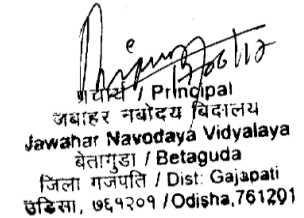 प्राचार्य / Principal
जबाहर नबोदय बिदालय
Jawahar Navodaya Vidyalaya
बेतागुडा / Betaguda
जिला गजपति / Dist: Gajapati
उडिसा, ७६१२०१ / Odisha, 761201